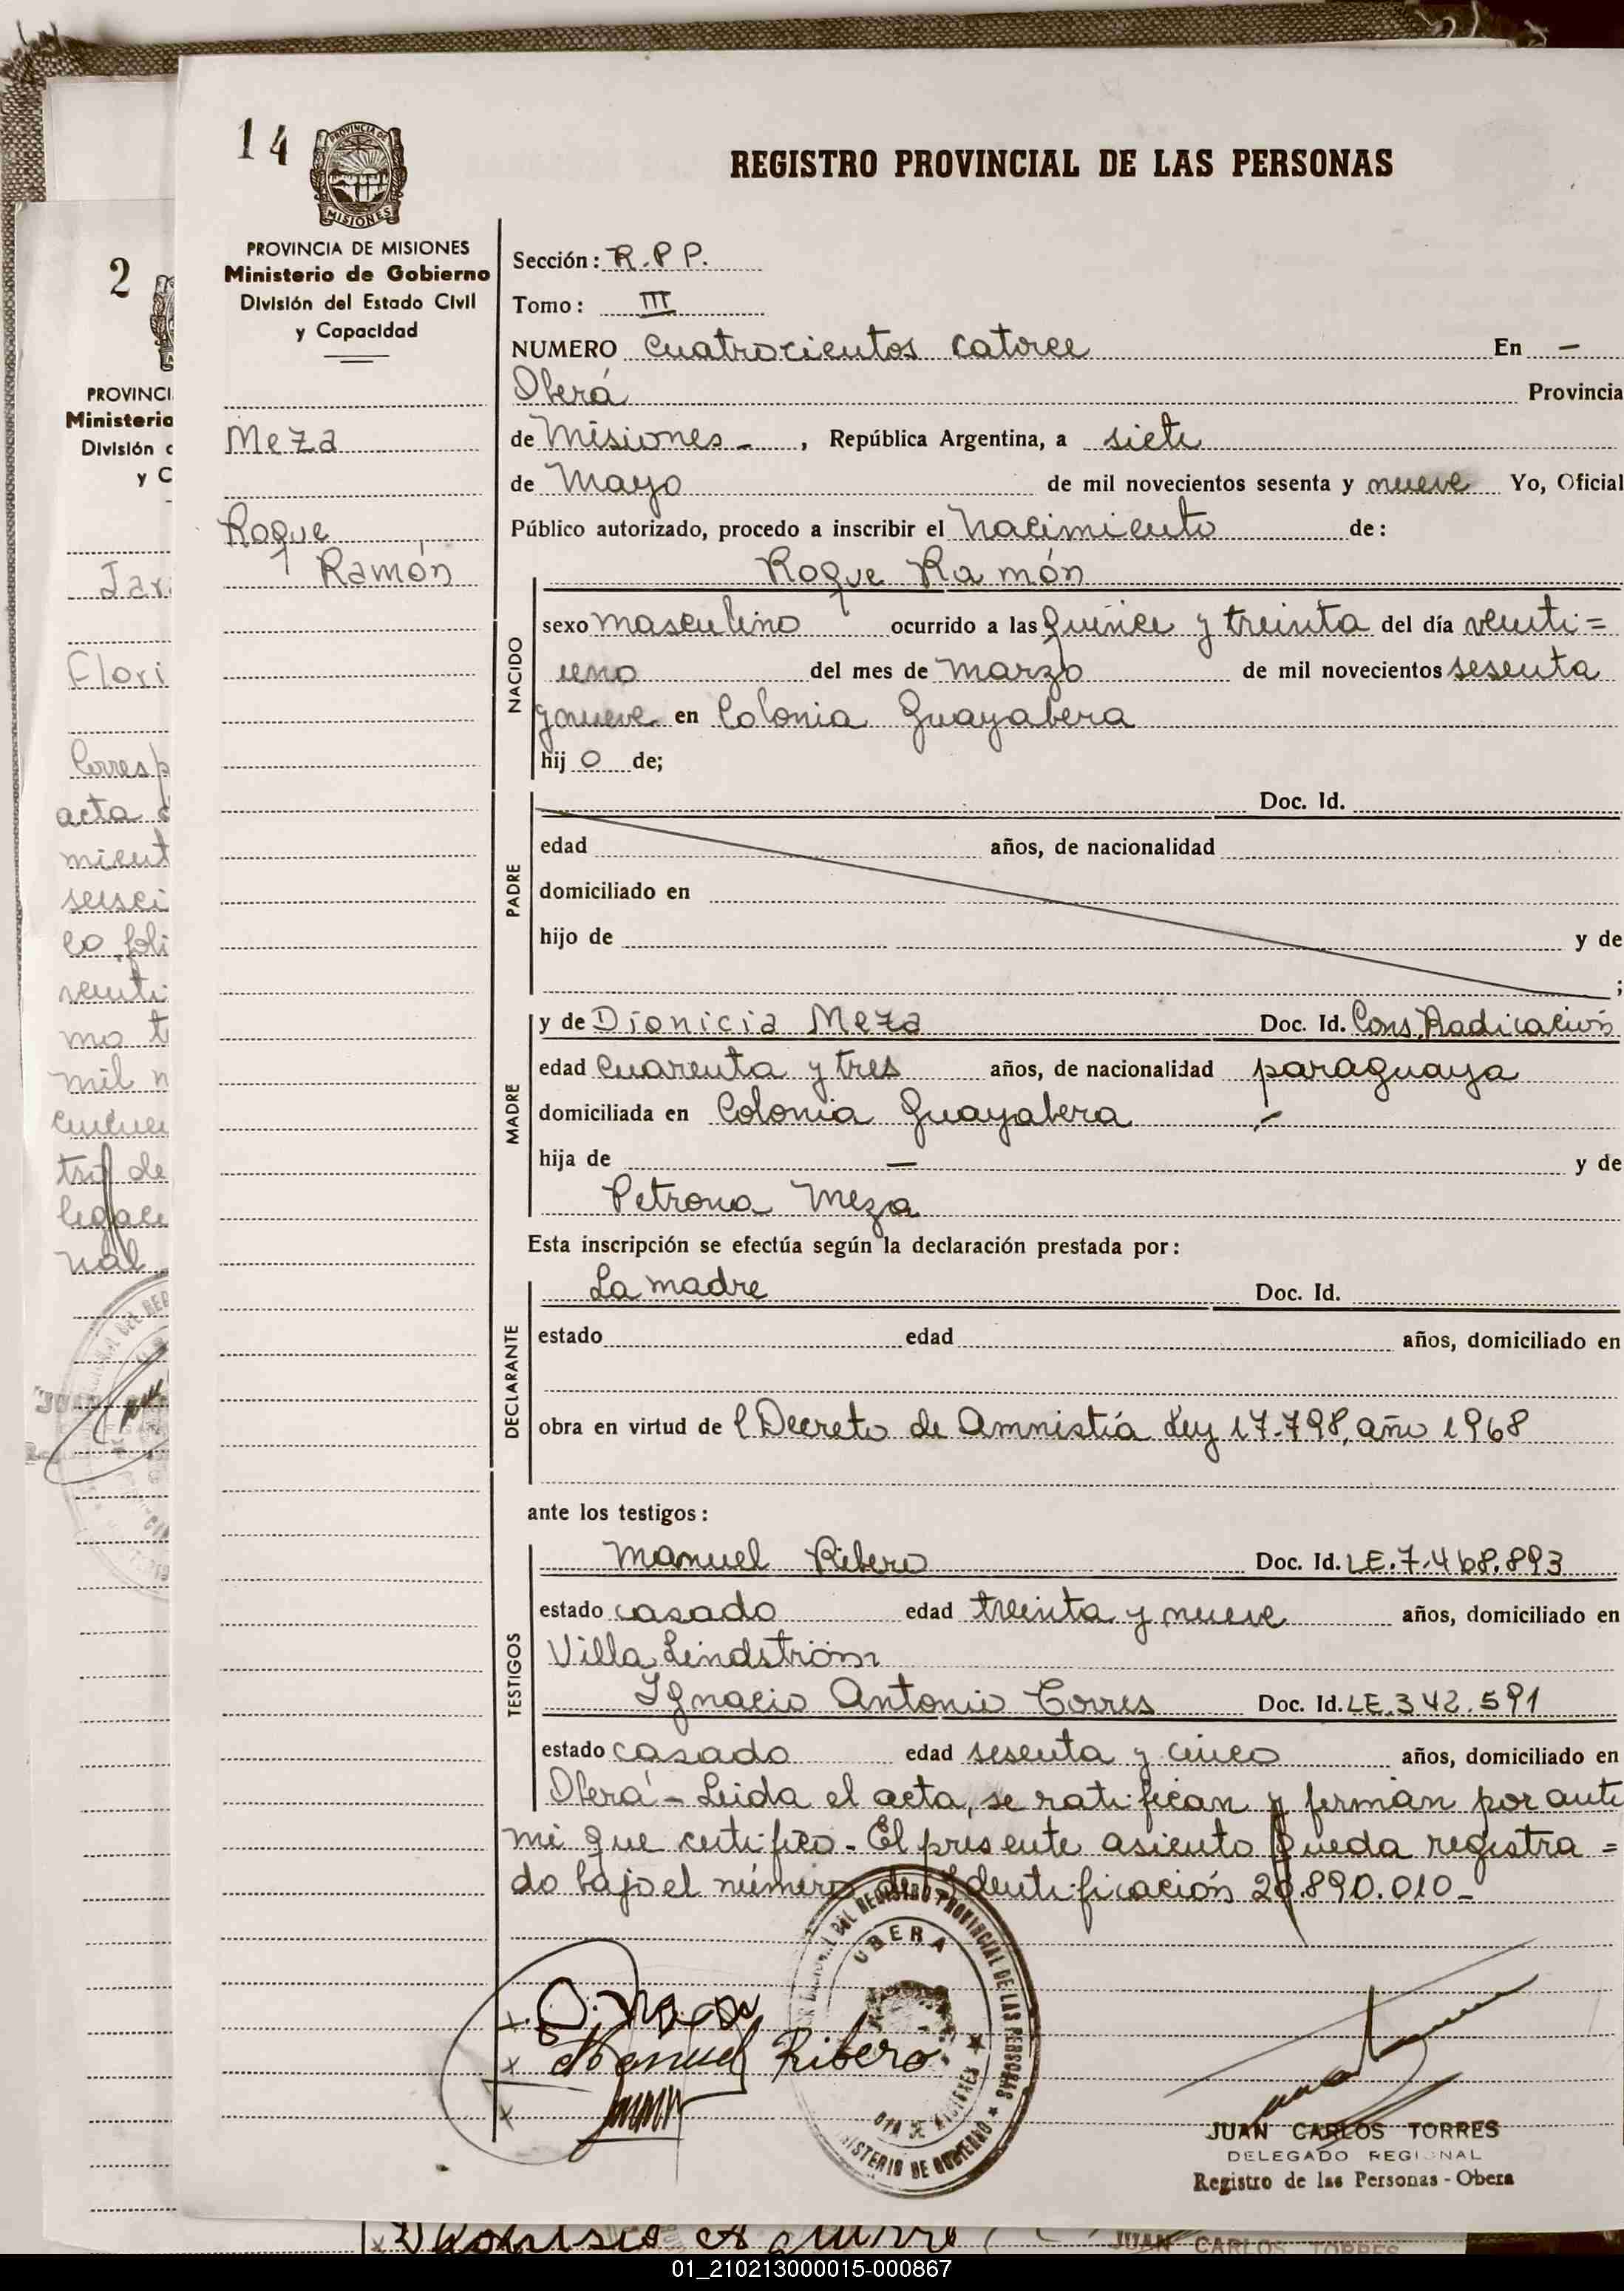 14
PROVINCIA DE
MISIONES
REGISTRO PROVINCIAL DE LAS PERSONAS
PROVINCIA DE MISIONES
Ministerio de Gobierno
División del Estado Civil
y Capacidad
Meza
Roque
Ramón
Sección: R.P.P.
Tomo: III
NUMERO Cuatrocientos catorce En -
Oberá Provincia
de Misiones - , República Argentina, a siete
de Mayo de mil novecientos sesenta y nueve Yo, Oficial
Público autorizado, procedo a inscribir el Nacimiento de:
Roque Ramón
NACIDO
sexo masculino ocurrido a las quince y treinta del día veinti=
uno del mes de marzo de mil novecientos sesenta
y nueve en Colonia Guayabera
hij o de;
PADRE
Doc. Id.
edad años, de nacionalidad
domiciliado en
hijo de y de
;
MADRE
y de Dionicia Meza Doc. Id. Cons. Radicación
edad cuarenta y tres años, de nacionalidad paraguaya
domiciliada en Colonia Guayabera .-
hija de — y de
Petrona Meza
Esta inscripción se efectúa según la declaración prestada por:
DECLARANTE
La madre Doc. Id.
estado edad años, domiciliado en
obra en virtud de l Decreto de Amnistía Ley 17.798, año 1968
ante los testigos:
TESTIGOS
Manuel Ribero Doc. Id. LE.7.468.893
estado casado edad treinta y nueve años, domiciliado en
Villa Lindström
Ignacio Antonio Torres Doc. Id. LE.342.591
estado casado edad sesenta y cinco años, domiciliado en
Oberá - Leida el acta, se ratifican y firman por ante
mi que certifico - El presente asiento queda registra=
do bajo el número de Identificación 20.890.010-
OBERA
REGISTRO PROVINCIAL DE LAS PERSONAS
MINISTERIO DE GOBIERNO
Manuel Ribero
JUAN CARLOS TORRES
DELEGADO REGIONAL
Registro de las Personas - Obera
2
PROVINCI
Ministerio
División d
y C
Jar
Flori
Corresp
acta d
mient
seisci
co foli
veinti
mo t
mil n
tro de
legaci
nal
JUAN
JUAN CARLOS TORRES
01_210213000015-000867